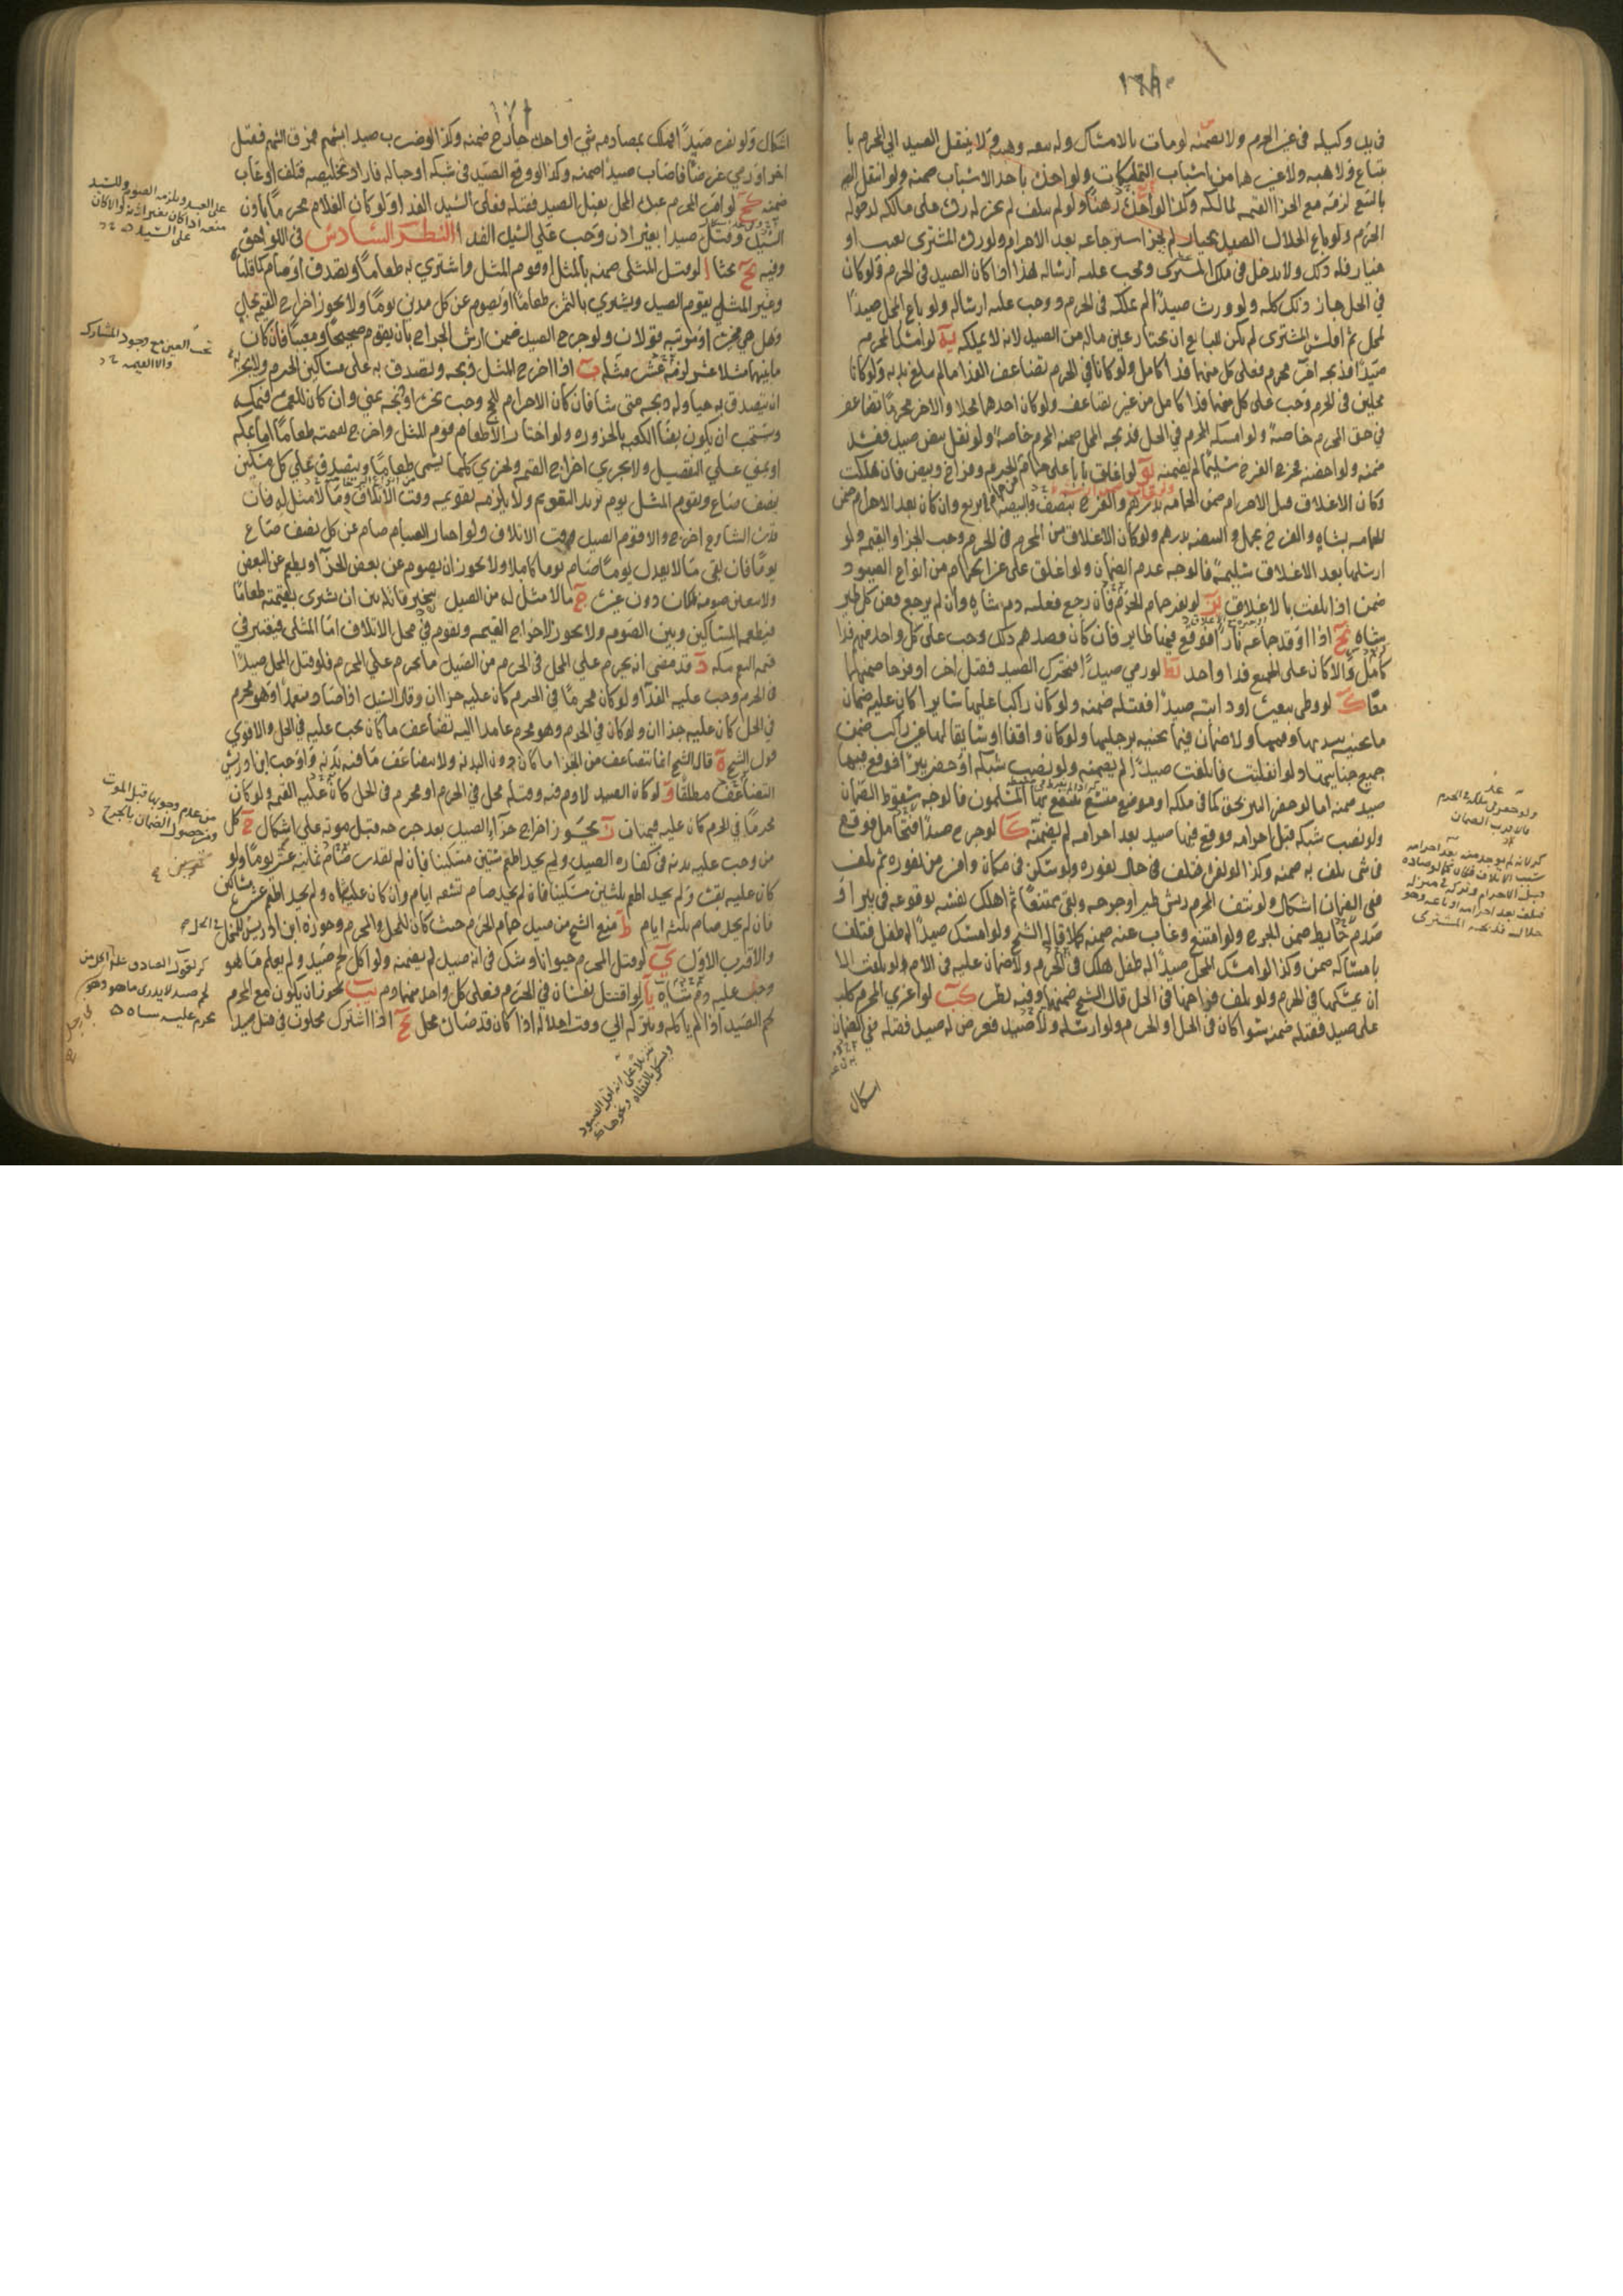 في يد وكيله في غير الحرم ولا يضمنه لو مات بالامساك وله بيعه وهبته ولا ينتقل الصيد الى المحرم با
بتياع ولا هبة ولا غيرهما من اسباب التمليكات ولو اخذه باحد الاسباب ضمنه ولو انتقل اليه
بالبيع لزمه مع الجزا القيمه لمالكه وكذا لو اخذه رهنا ولو لم يتلف لم يجز له رده على مالكه لدخوله
الحرم ولو باع الحلال الصيد بخيار لم يجز استرجاعه بعد الاحرام ولو رده المشترى بعيب او
خيار فله ذلك ولا يدخل في ملك المشترى ويجب عليه ارساله هذا اذا كان الصيد في الحرم ولو كان
في الحل جاز ذلك كله ولو ورث صيدا لم يملكه في الحرم ووجب عليه ارساله ولو باع المحل صيدا
لمحل ثم افلس المشترى لم يكن للبايع ان يختار عين ماله من الصيد لانه لا يملكه يه لو امسك المحرم
صيدا فذبحه اخر محرم فعلى كل منهما فدا كامل ولو كانا في الحرم تضاعف الفدا ما لم يبلغ بدنه ولو كانا
محلين في الحرم وجب على كل منهما فدا كامل من غير تضاعف ولو كان احدهما محلا والاخر محرما تضاعف
في حق المحرم خاصة ولو امسكه المحرم في الحل فذبحه المحل ضمنه المحرم خاصة ولو نقل بيض صيد ففسد
ضمنه ولو احضنه فخرج الفرخ سليما لم يضمنه يو لو اغلق بابا على حمام الحرم وفراخ وبيض فان هلكت
وكان الاغلاق قبل الاحرام ضمن الحمامه بدرهم والفرخ بنصف والبيضه بربع وان كان بعد الاحرام ضمن
الحمامه بشاه والفرخ بحمل والبيضه بدرهم ولو كان الاغلاق من المحرم في الحرم وجب الجزا والقيمه ولو
ارسلها بعد الاغلاق سليمه فالوجه عدم الضمان ولو اغلق على غير الحمام من انواع الصيود
ضمن اذا تلفت بالاغلاق يز لو نفر حمام الحرم فان رجع فعليه دم شاه وان لم يرجع فعن كل طير
بشاه يح اذا اوقد جماعه نارا فوقع فيها طاير فان كان قصدهم ذلك وجب على كل واحد منهم فدا
كامل والا كان على الجميع فدا واحد يط لو رمى صيدا فتحرك الصيد فقتل اخر او فرخا ضمنهما
معا ك لو وطى ببعيره او دابته صيدا فقتله ضمنه ولو كان راكبا عليها سايرا كان عليه ضمان
ما تجنيه بيديها وفمها ولا ضمان فيما تجنيه برجليها ولو كان واقفا او سايقا لها غير راكب ضمن
جميع جنايتها ولو انفلتت فاتلفت صيدا لم يضمنه ولو نصب شبكه او حفر بيرا فوقع فيها
صيد ضمنه اما لو حفر البير بحق كما في ملكه او موضع متسع ينتفع بها المسلمون فالوجه سقوط الضمان
ولو نصب شبكه قبل احرامه فوقع فيها صيد بعد احرامه لم يضمنه كا لو جرح صيدا فتحامل فوقع
في شى تلف به ضمنه وكذا لو نفره فتلف في حال نفوره ولو سكن في مكان وامن من نفوره ثم تلف
ففي الضمان اشكال ولو نتف المحرم ريش طير او جرحه وبقي ممتنعا ثم اهلك نفسه بوقوعه في بير او
صدم حايط ضمن الجرح ولو امتنع وغاب عنه ضمنه كملا قاله الشيخ ولو امسك صيدا له طفل فتلف
بامساكه ضمن وكذا لو امسك المحل صيدا له طفل هلك في الحرم ولا ضمان عليه في الام ولو تلفت الا
ان يمسكها في الحرم ولو تلف فرخها في الحل قال الشيخ ضمنها وفيه نظر كب لو اغرى المحرم كلبه
على صيد فقتله ضمنه سوا كان في الحل او الحرم ولو ارسله ولا صيد فعرض له صيد فقتله ففي الضمان
اشكال
اشكال ولو نفر صيدا فهلك بمصادمه شى او اخذه جارح ضمنه وكذا لو ضرب صيدا بسهم فمرق السهم فقتل
اخر او رمى غرضا فاصاب صيدا ضمنه وكذا لو وقع الصيد في شبكه او حباله فاراد تخليصه فتلف او غاب
ضمنه كج لو امر المحرم عبده المحل بقتل الصيد فقتله فعلى السيد الفدا ولو كان الغلام محرما باذن
السيد وقتل صيدا بغير اذن وجب على السيد الفدا النظر السادس في اللواحق
وفيه يح بحثا ا لو قتل المثلي ضمنه بالمثل او قوم المثل واشترى به طعاما وتصدق او صام كما قلنا
وغير المثلي يقوم الصيد ويشترى بالثمن طعاما او يصوم عن كل مدين يوما ولا يجوز اخراج القيمه بحال
وهل هي مخيره او مرتبه قولان ولو جرح الصيد ضمن ارش الجراح بان يقوم صحيحا ومعيبا فان كان
ما بينهما مثلا عشر لزمه عشر مثله ب اذا اخرج المثل ذبحه وتصدق به على مساكين الحرم ولا يجزيه
ان يتصدق به حيا وله ذبحه متى شا فان كان الاحرام للحج وجب نحره او ذبحه بمنى وان كان للعمره فبمكه
ويستحب ان يكون بفنا الكعبه بالحزوره ولو اختار الاطعام قوم المثل واخرج بقيمته طعاما اما بمكه
او بمنى على التفصيل ولا يجزى اخراج القيمه ويجزى كلما يسمى طعاما ويتصدق على كل مسكين
بنصف صاع ويقوم المثل يوم يريد التقويم ولا يلزمه تقويمه وقت الاتلاف وما لا مثل له فان
قدر الشارع اخرجه والا قوم الصيد وقت الاتلاف ولو اختار الصيام صام عن كل نصف صاع
يوما فان بقي ما لا يعدل يوما صام يوما كاملا ولا يجوز ان يصوم عن بعض الجزا ويطعم عن البعض
ولا يتعين صومه بمكان دون غيره ج ما لا مثل له من الصيد يتخير قاتله بين ان يشترى بقيمته طعاما
فيطعم المساكين وبين الصوم ولا يجوز له اخراج القيمه ويقوم في محل الاتلاف اما المثلي فيعتبر في
قيمه النعم بمكه د قد مضى انه يحرم على المحل في الحرم من الصيد ما يحرم على المحرم فلو قتل المحل صيدا
في الحرم وجب عليه الفدا ولو كان محرما في الحرم كان عليه جزاان وقال السيد اذا صاد متعمدا وهو محرم
في الحل كان عليه جزاان ولو كان في الحرم وهو محرم عامدا اليه تضاعف ما كان يجب عليه في الحل والاقوى
قول الشيخ ه قال الشيخ انما يتضاعف من الجزا ما كان دون البدنه ولا يتضاعف ما فيه بدنه واوجب ابن ادريس
التضاعف مطلقا و لو كان الصيد لا دم فيه وقتله محل في الحرم او محرم في الحل كان عليه القيمه ولو كان
محرما في الحرم كان عليه قيمتان ز يجوز اخراج جزاء الصيد بعد جرحه قبل موته على اشكال ح كل
من وجب عليه بدنه في كفاره الصيد ولم يجد اطعم ستين مسكينا فان لم يقدر صام ثمانيه عشر يوما ولو
كان عليه بقره ولم يجد اطعم ثلثين مسكينا فان لم يجد صام تسعه ايام وان كان عليه شاه ولم يجد اطعم عشره مساكين
فان لم يجد صام ثلثه ايام ط منع الشيخ من صيد حمام الحرم حيث كان للمحل والمحرم وجوزه ابن ادريس للمحل في الحل
والاقرب الاول ي لو قتل المحرم حيوانا وشك في انه صيد لم يضمنه ولو اكل لحم صيد ولم يعلم ما هو
وجب عليه دم شاه يا لو اقتتل نفسان في الحرم فعلى كل واحد منهما دم يب يجوز ان يكون مع المحرم
لحم الصيد اذا لم ياكله ويتركه الى وقت احلاله اذا كان قد صاده محل يج اذا اشترك محلون في قتل صيد
من عدم وجوبها قبل الموت
ومن حصول الضمان بالجرح
تحت العين مع وجود المشارك
والا القيمه